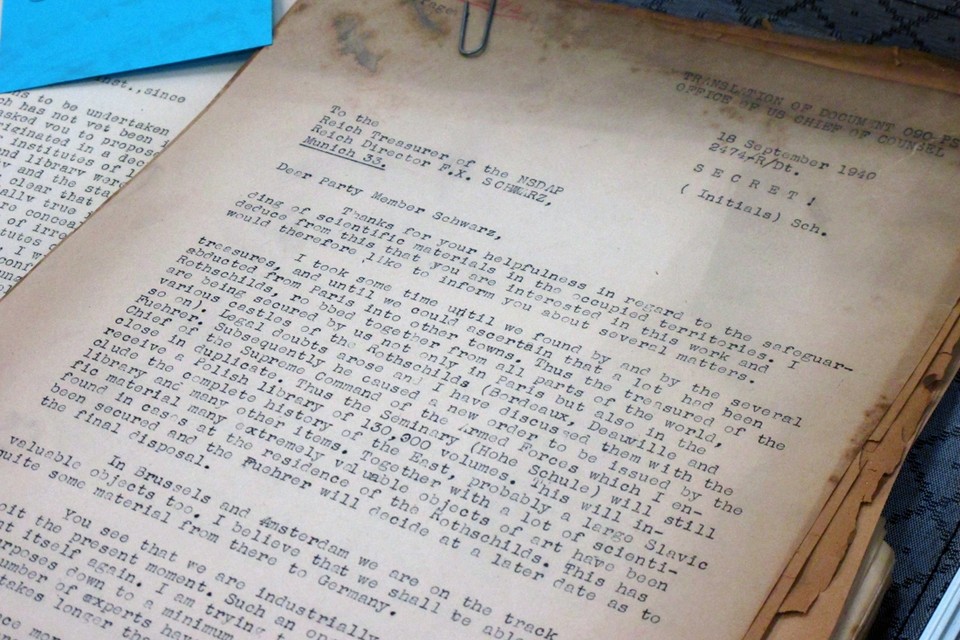 since
to be undertaken
has not yet been
asked you to
institutes of
and the
clear that
true
of
TRANSLATION OF DOCUMENT 090-PS
OFFICE OF US CHIEF OF COUNSEL
18 September 1940
2474/R/Dt.
S E C R E T !
( Initials) Sch.
To the
Reich Treasurer of the NSDAP
Reich Director F.X. SCHWARZ,
Munich 33.
Dear Party Member Schwarz,
Thanks for your helpfulness in regard to the safeguar-
ding of scientific materials in the occupied territories. I
deduce from this that you are interested in this work and
would therefore like to inform you about several matters.
I took some time until we found by and by the several
treasures, and until we could ascertain that a lot had been
abducted from Paris into other towns. Thus the treasured of the
Rothschilds, ro bbed together from all parts of the world,
are being secured by us not only in Paris but also in the
various castles of the Rothschilds (Bordeaux, Deauville and
so on). Legal doubts arose and I have discussed them with the
Fuehrer. Subsequently he caused a new order to be issued by the
Chief of the Supreme Command of the Armed Forces which I en-
close in duplicate. Thus the Seminary (Hohe Schule) will still
receive a Polish library of 130,000 volumes. This will in-
clude the complete history of the East, probably a large Slavic
library and many other items. Together with a lot of scienti-
fic material many extremely valuable objects of art have been
found in cases at the residence of the Rothschilds. This has
been secured and the Fuehrer will decide at a later date as to
the final disposal.
In Brussels and Amsterdam we are on the track
valuable objects too. I believe that we shall be able
quite some material from there to Germany.
You see that we are industrially
the present moment. Such an
itself again. I am trying
down to a minimum
of experts have
takes longer